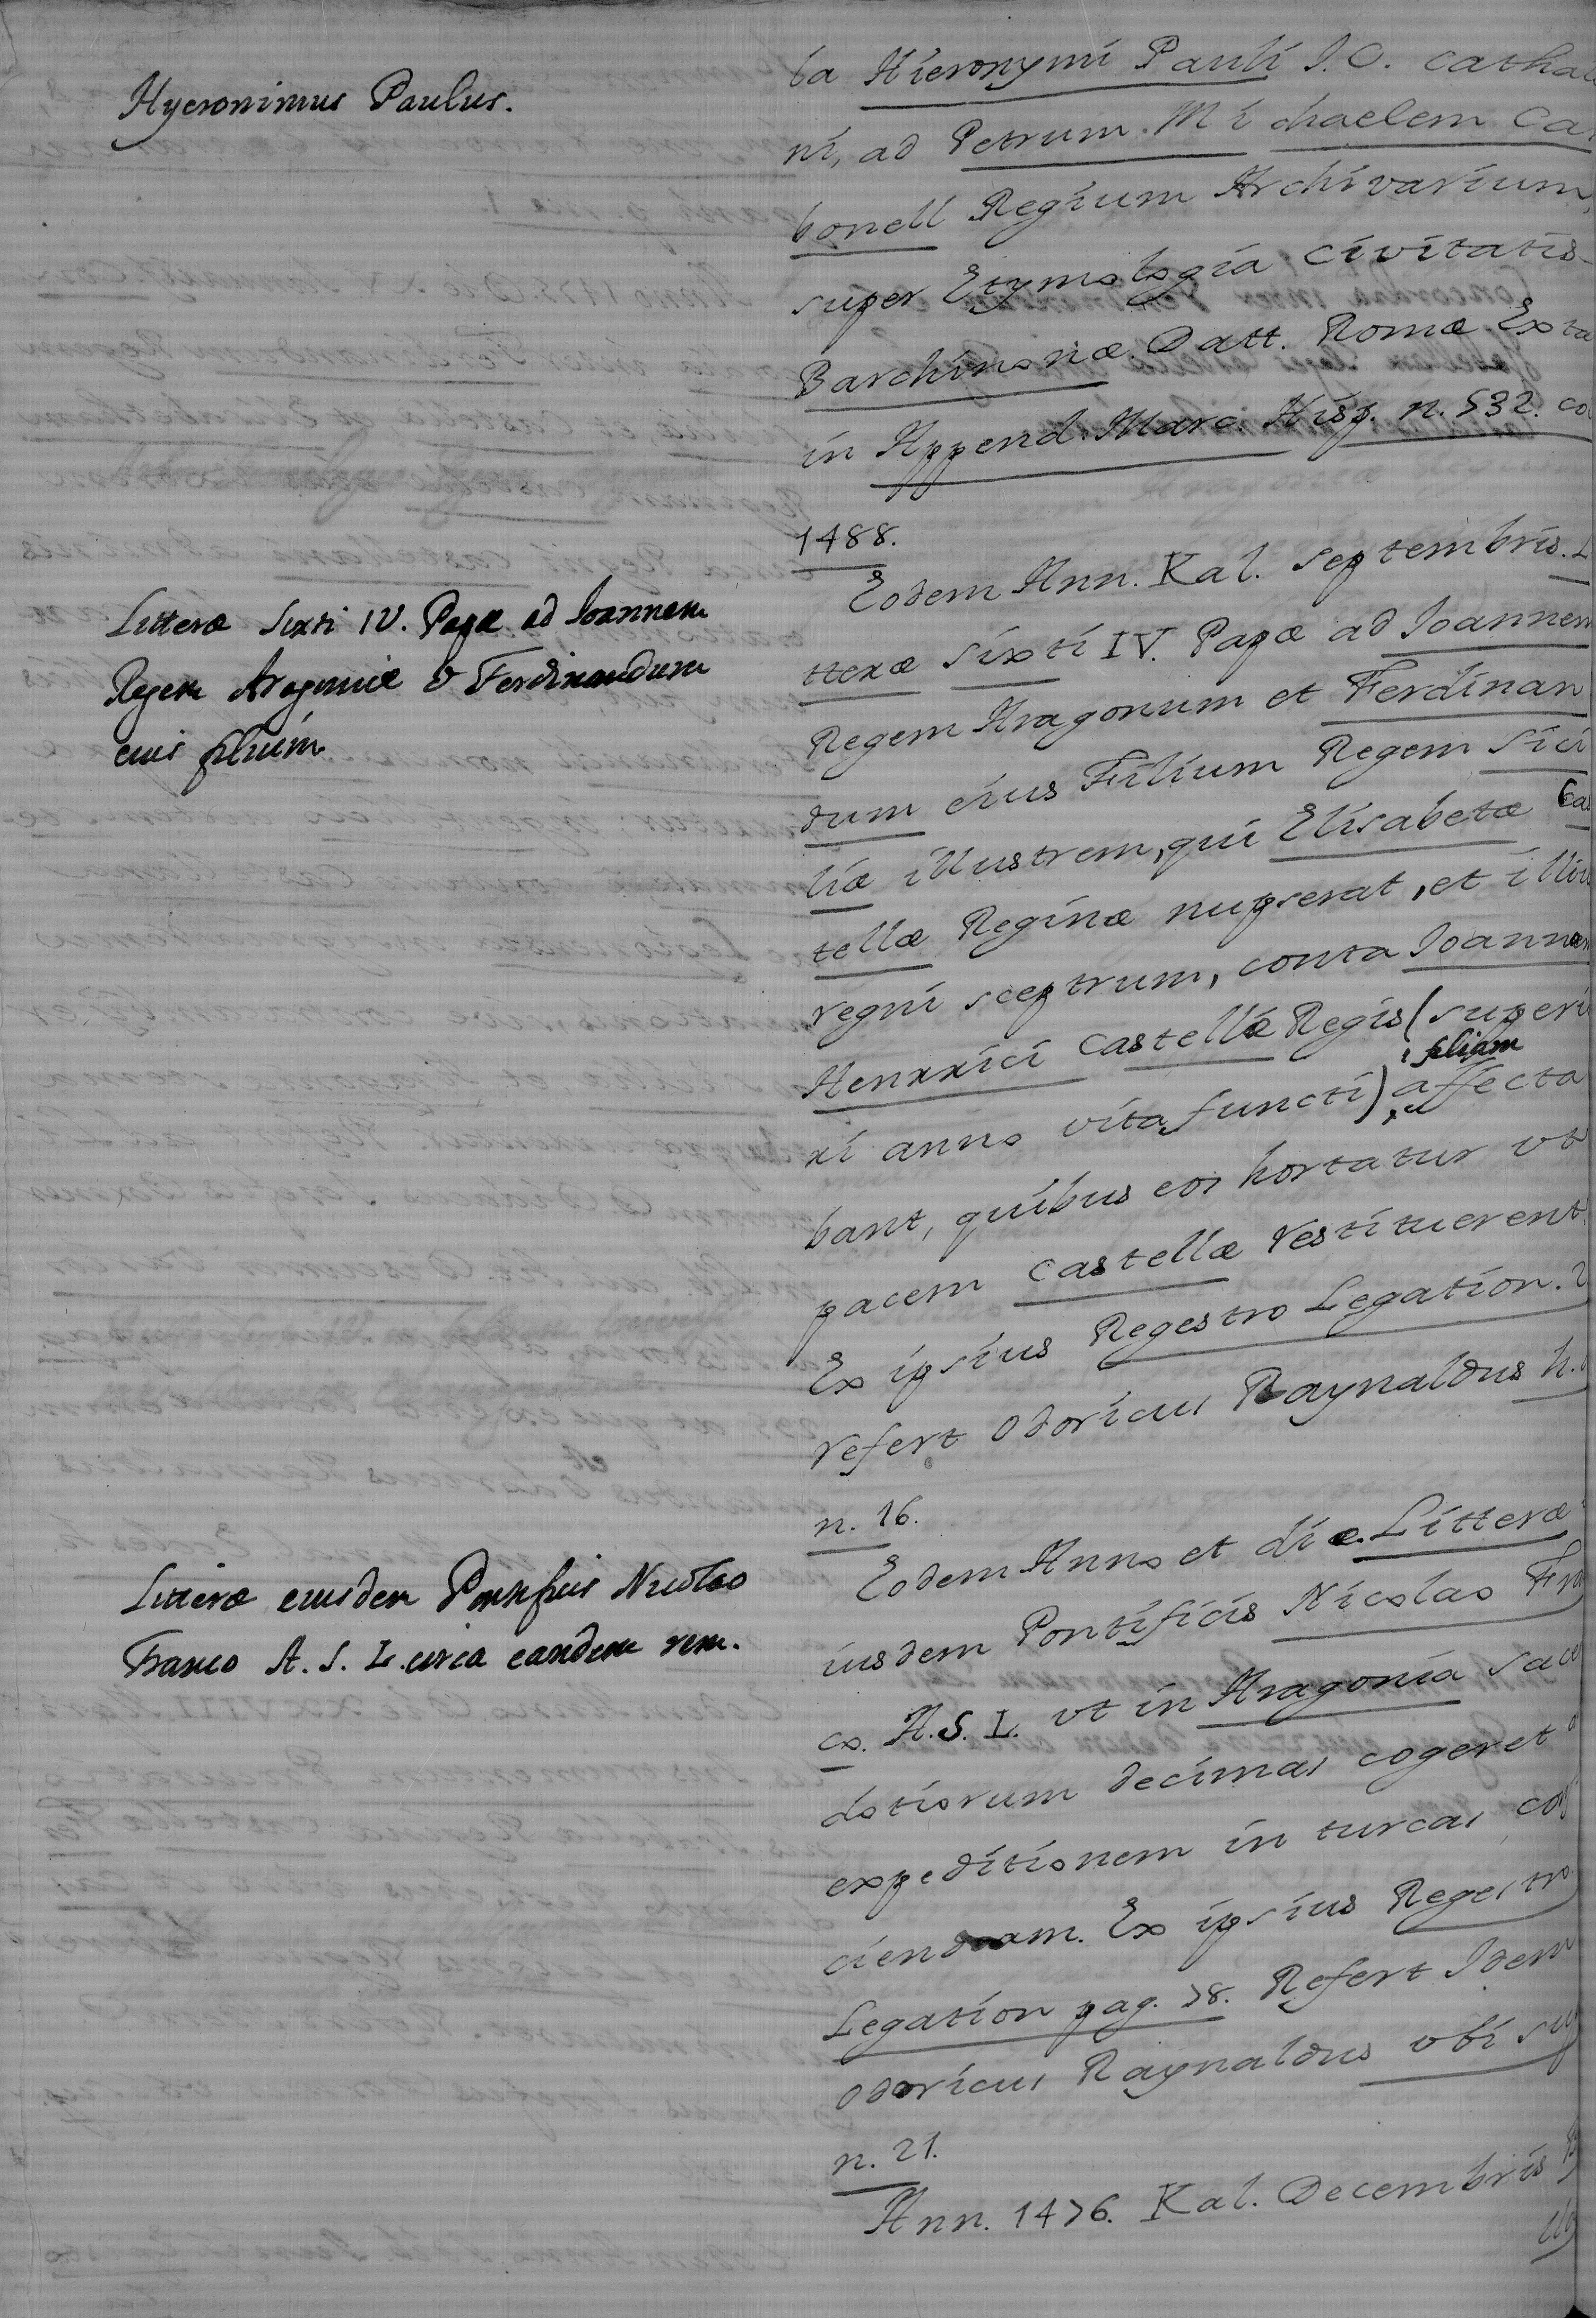 Hyeronimus Paulus.
ba Hieronymi Pauli J.C. Cathala
ni, ad Petrum. Mi chaelem Car
bonell Regium Archivarium,
super Etymologia Civitatis
Barchinonæ. Datt. Romæ Exta
in Append. Marc. Hisp. n. 532. co
1488.
Litteræ Sixti IV. Papæ ad Joannem
Regem Aragoniæ & Ferdinandum
eius filium
Eodem Ann. Kal. Septembris. L
tteræ Sixti IV. Papæ ad Joannem
Regem Aragonum et Ferdinan
dum eius Filium Regem Sici
liæ illustrem, qui Elisabetæ Cas
tellæ Reginæ nupserat, et illiu
regni sceptrum, conta Joannam
Henrrici Castellæ Regis (superi
ri anno vita functi) filiam affecta
bant, quibus eos hortatur vt
pacem Castellæ restituerent.
Ex ipsius Regestro Legation. 2
refert Odoricus Raynaldus h.
n. 16.
Litteræ eiusdem Pontificis Nicolao
Franco A. S. L. circa eandem rem.
Eodem Anno et die. Litteræ
iusdem Pontificis Nicolao Fra
co. A.S.L. vt in Aragonia sace
dotiorum decimas cogeret
expeditionem in turcas con
ciendam. Ex ipsius Regestro
Legation pag. 78. Refert Idem
Odoricus Raynaldus vbi sup
n. 21.
Ann. 1476. Kal. Decembris